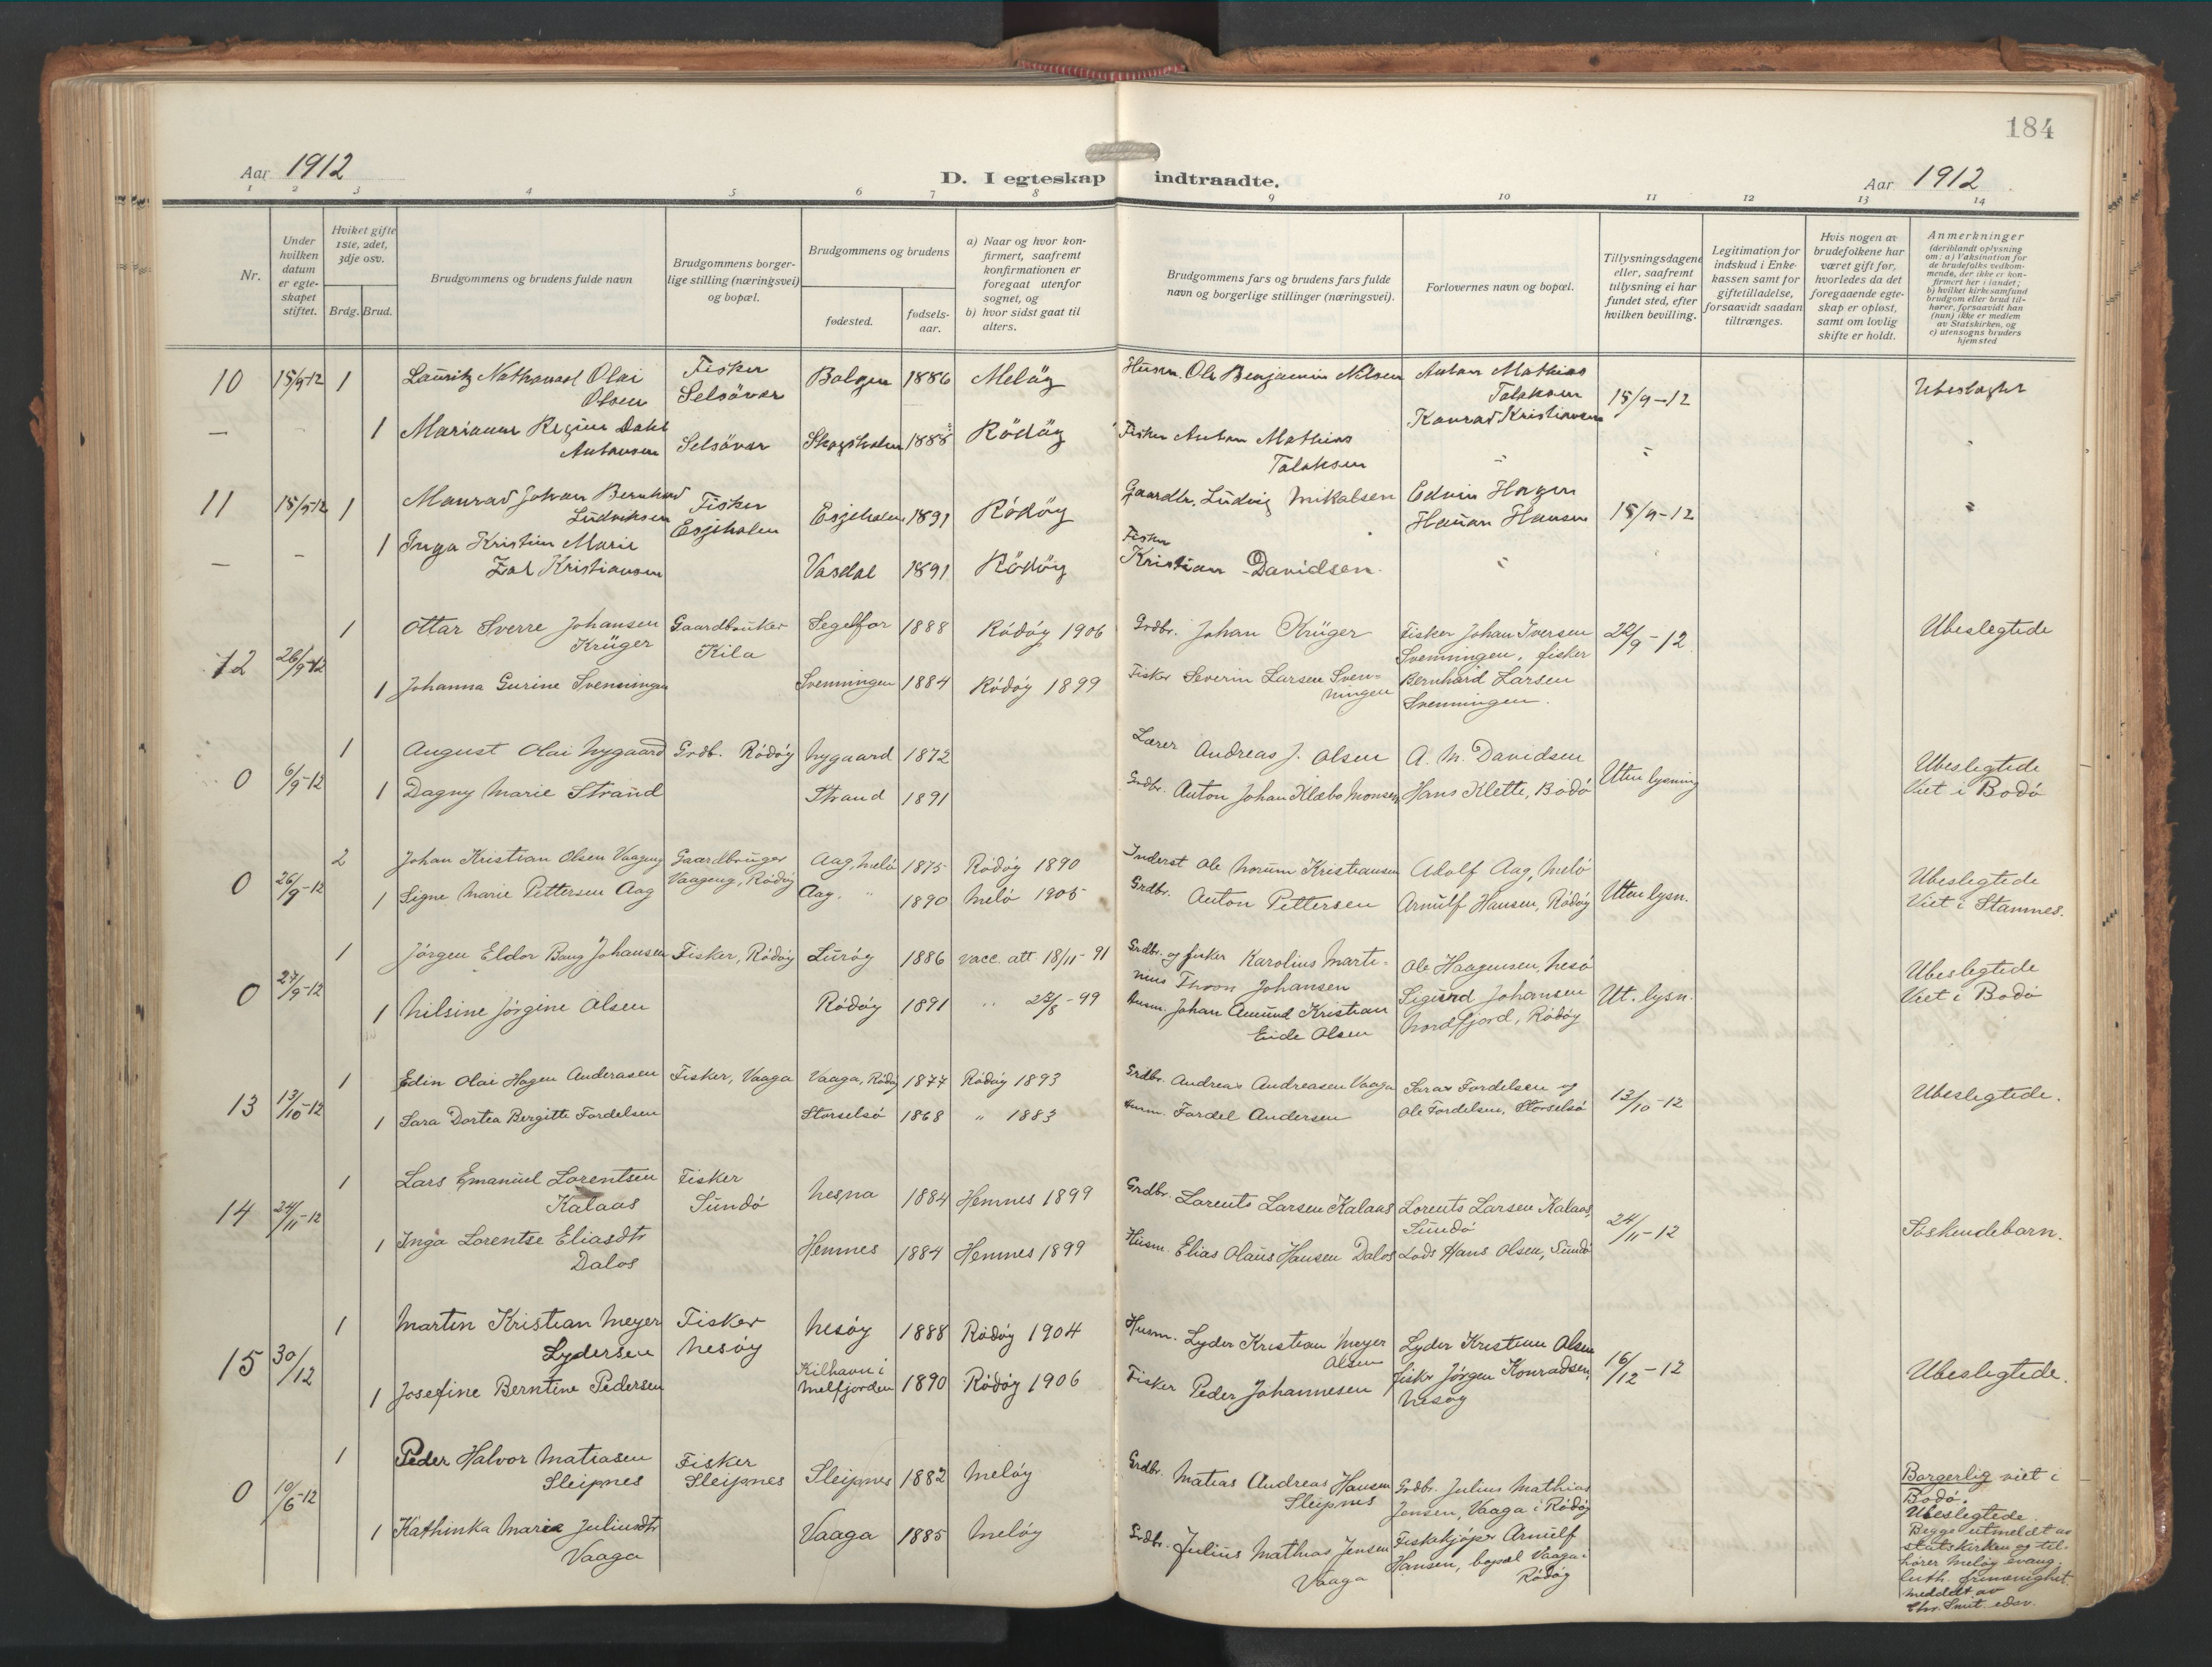 184
Aar 1912
D. I egteskap indtraadte.
Aar 1912
1 2 3 4 5 6 7 8 9 10 11 12 13 14
Nr.
Under hvilken datum er egteskapet stiftet.
Hviket gifte 1ste, 2det, 3dje osv.
Brdg. Brud.
Brudgommens og brudens fulde navn
Brudgommens borgerlige stilling (næringsvei) og bopæl.
Brudgommens og brudens
fødested.
fødselsaar.
a) Naar og hvor konfirmert, saafremt konfirmationen er foregaat utenfor sognet, og
b) hvor sidst gaat til alters.
Brudgommens fars og brudens fars fulde navn og borgerlige stillinger (næringsvei).
Forlovernes navn og bopæl.
Tillysningsdagene eller, saafremt tillysning ei har fundet sted, efter hvilken bevilling.
Legitimation for indskud i Enkekassen samt for giftetilladelse, forsaavidt saadan tiltrænges.
Hvis nogen av brudefolkene har været gift før, hvorledes da det foregaaende egteskap er opløst, samt om lovlig skifte er holdt.
Anmerkninger
(deriblandt oplysning om: a) Vaksination for de brudefolks vedkommende, der ikke er konfirmert her i landet; b) hvilket kirkesamfund brudgom eller brud tilhører, forsaavidt han (hun) ikke er medlem av Statskirken, og c) utensogns bruders hjemsted
10 15/9-12 1 Lauritz Nathanael Olai Olsen Fisker Selsövær Bolgen 1886 Melöy Husm. Ole Benjamin Nilsen Anton Mathias Talaksen Konrad Kristiansen 15/9-12 Ubeslegtet
— 1 Marianne Regine Dahl Antonsen Selsövær Skogsholmen 1888 Rödöy Fisker Anton Mathias Talaksen " " "
11 15/9-12 1 Manrad Johan Bernhard Ludviksen Fisker Esjeholmen Esjeholmen 1891 Rödöy Gaardbr. Ludvig Mikalsen Edvin Hagen Hauan Hansen 15/9-12 "
— - 1 Inga Kristine Marie Kristiansen Vasdal 1891 Rödöy Fisker Kristian Davidsen "
12 26/9-12 1 Ottar Sverre Johansen Krüger Gaardbruker Kila Segelfor 1888 Rödöy 1906 Grdbr. Johan Krüger Fisker Johan Iversen Svenningen, fisker 22/9-12 Ubeslegtede
1 Johanna Gurine Svenningen Svenningen 1884 Rödöy 1899 Fisker Severin Larsen Svenningen Bernhard Larsen Svenningen.
0 6/9-12 1 August Olai Nygaard Grdb. Rödöy Nygaard 1872 Lærer Andreas J. Olsen A. M. Davidsen Uten lysning Ubeslegtede
1 Dagny Marie Strand Strand 1891 Grdbr. Anton Johan Klæbo Monsen Hans Klette, Bodö Viet i Bodö
0 26/9-12 2 Johan Kristian Olsen Vaageng Gaardbruger Vaageng, Rödöy Aag, Melö 1875 Rödöy 1890 Inderst Ole Norum Kristiansen Adolf Aag, Melö Uten lysn. Ubeslegtede
1 Signe Marie Pettersen Aag Aag. " 1890 Melö 1905 Grdbr. Anton Pettersen Arnulf Hansen, Rödöy Viet i Stamnes.
0 27/9-12 1 Jörgen Eldor Bang Johansen Fisker, Rödöy Luröy 1886 vacc. att. 18/11-91 Grdbr. og fisker Karolius Martinius Thron Johansen Ole Haagensen, Nesö Ut. lysn. Ubeslegtede
1 Nilsine Jörgine Olsen Rödöy 1891 " 27/8-99 Husm. Johan Amund Kristian Eide Olsen Sigurd Johansen Nordfjord, Rödöy Viet i Bodö
13 13/10-12 1 Edin Olai Hagen Anderasen Fisker, Vaaga Vaaga, Rödöy 1877 Rödöy 1893 Grdbr. Andreas Andreasen Vaaga Saras Fordelsen og 13/10-12 Ubeslegtede.
1 Sara Dortea Bergitte Fordelsen Storselsö 1868 " 1883 Husm. Fordel Andersen Ole Fordelsen, Storselsö
14 24/11-12 1 Lars Emanuel Lorentsen Kalaas Fisker Sundö Nesna 1884 Hemnes 1899 Grdbr. Lorents Larsen Kalaas Lorents Larsen Kalaas, Sundö 24/11-12 Söskendebarn.
1 Inga Lorentse Eliasdtr Dalos Hemnes 1884 Hemnes 1899 Husm. Elias Olaus Hansen Dalos Lods Hans Olsen, Sundö
15 30/12 1 Martin Kristian Meyer Lydersen Fisker Nesöy Nesöy 1888 Rödöy 1904 Husm. Lyder Kristian Meyer Olsen Lyder Kristian Olsen 16/12-12 Ubeslegtede.
1 Josefine Berntine Pedersen Kilhavn i Melfjorden 1890 Rödöy 1906 Fisker Peder Johannesen fisker Jörgen Konradsen, Nesöy
0 10/6-12 1 Peder Halvor Matiasen Sleipnes Fisker Sleipnes Sleipnes 1882 Melöy Grdbr. Matias Andreas Hansen Sleipnes Grdbr. Julius Mathias Jensen, Vaaga i Rödöy Borgerlig viet i Bodö. Ubeslegtede.
1 Kathinka Marie Juliusdtr Vaaga Vaaga 1885 Melöy Grdbr. Julius Mathias Jensen Vaaga Fiskekjöper Arnulf Hansen, bopæl Vaaga i Rödöy Begge utmeldt av statskirken og tilhörer Melöy evang. luth. frimenighet. meddelt av